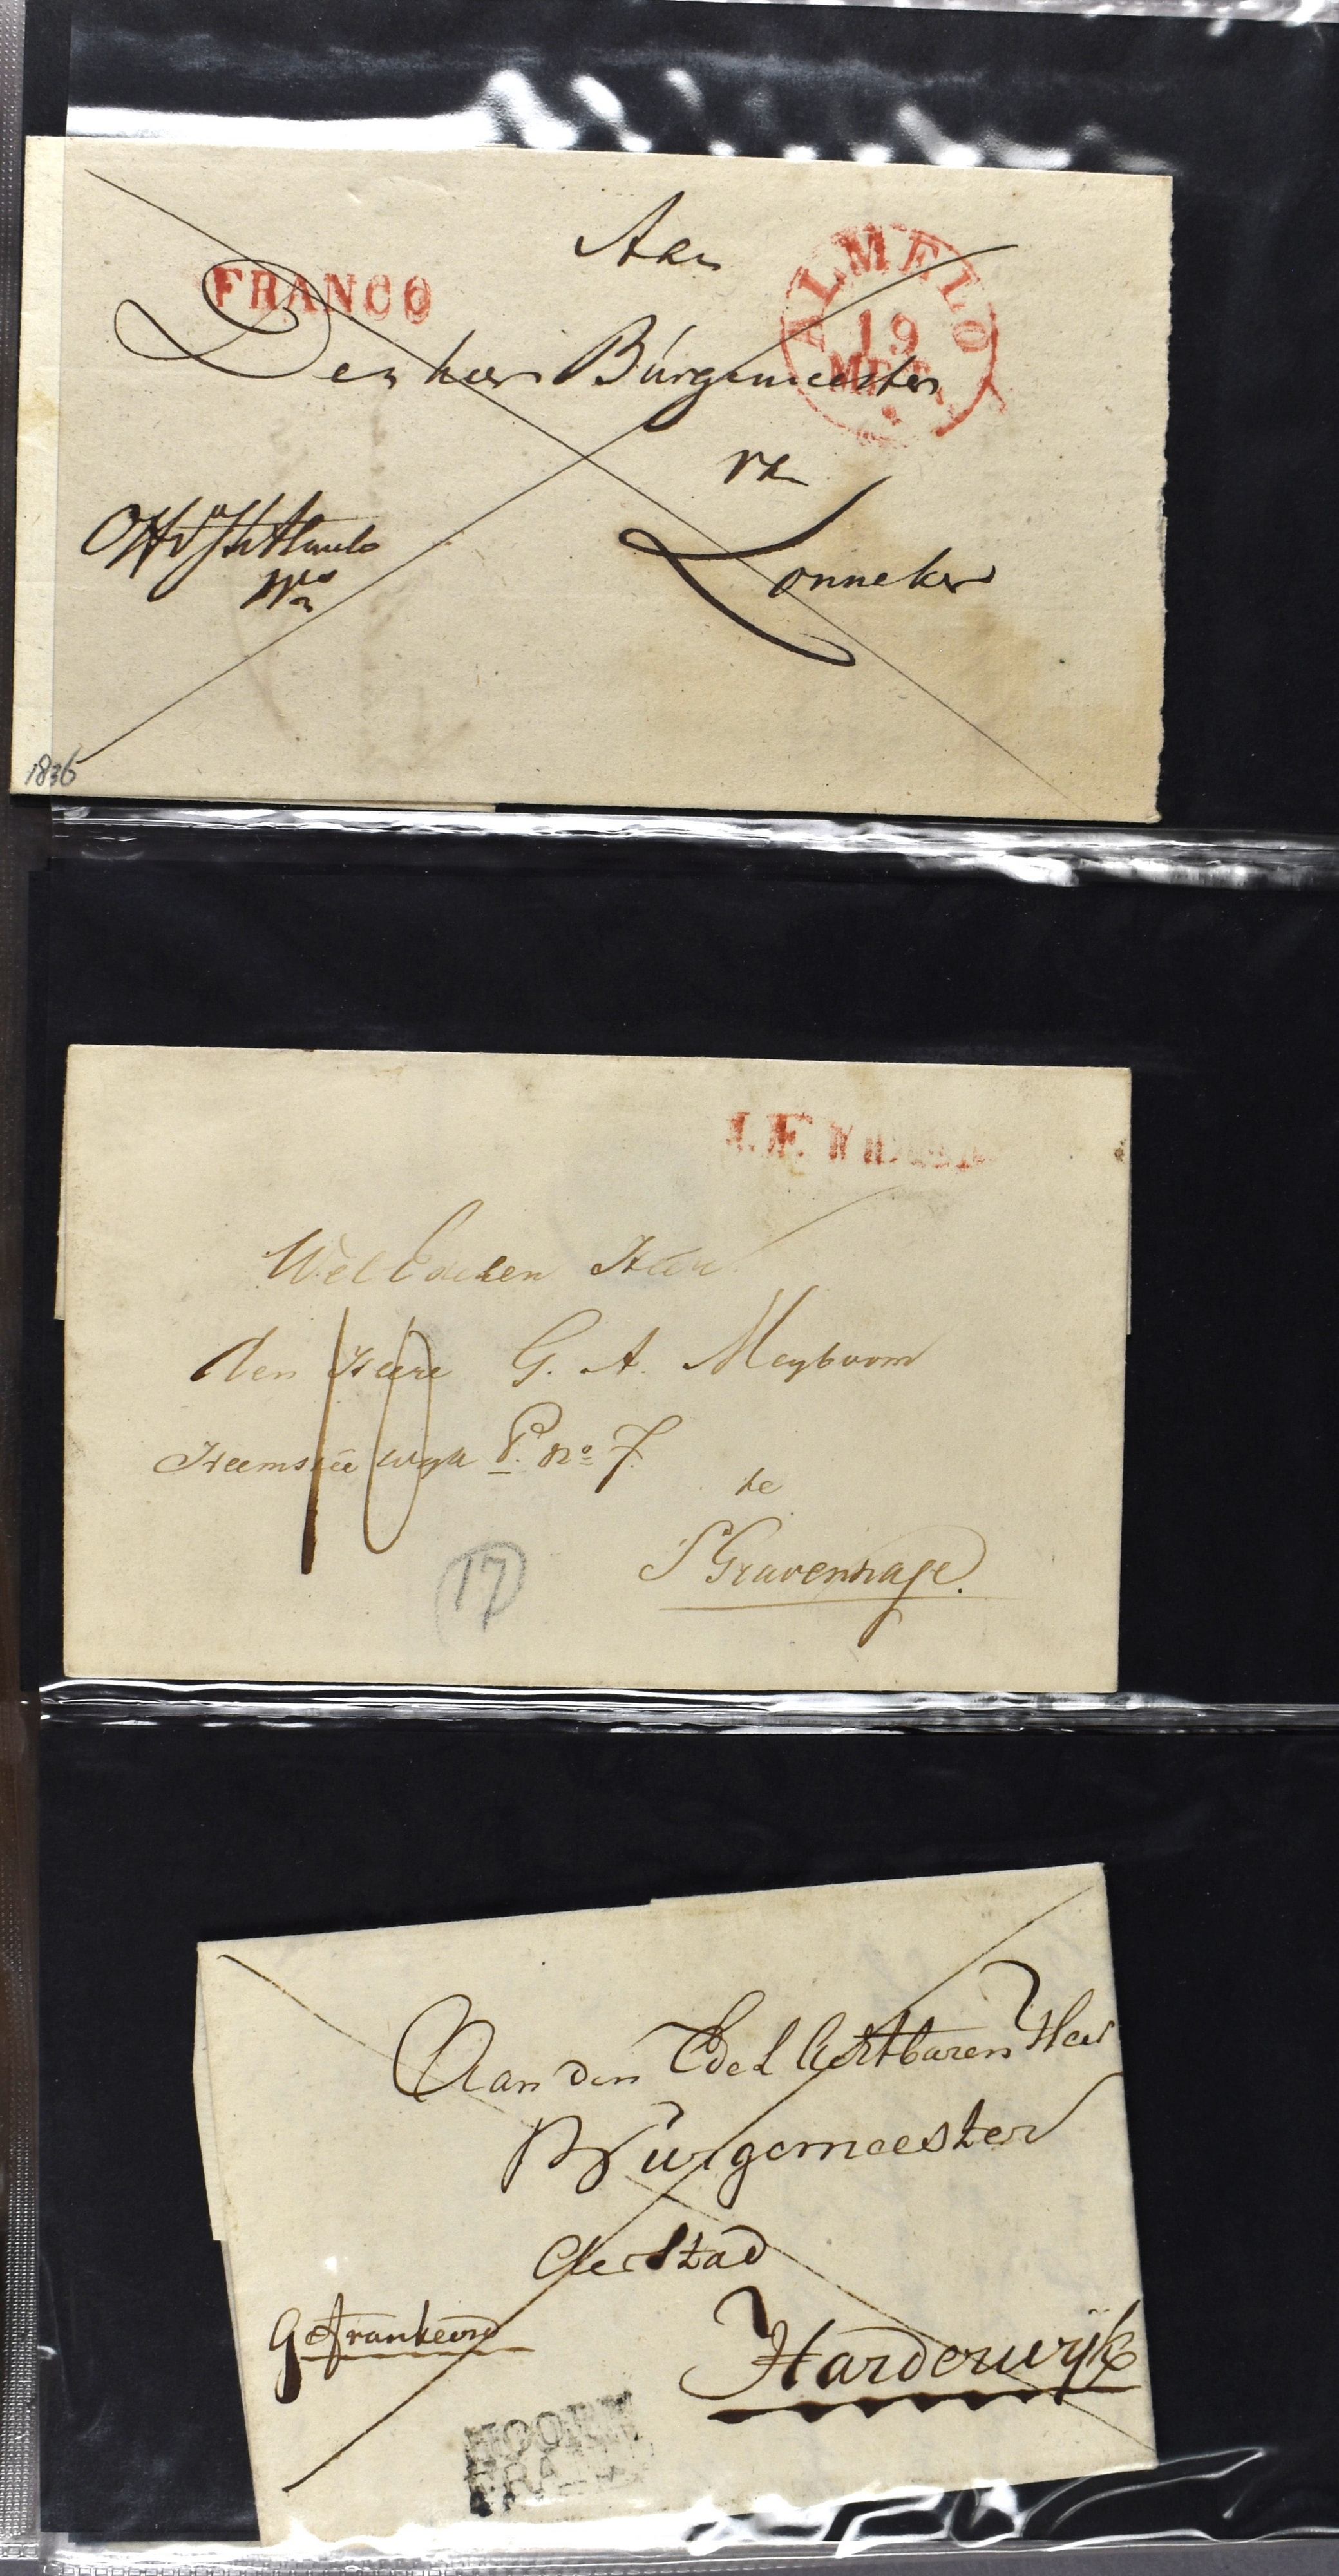 Aan
FRANCO
ALMELO
19
Den heer Burgemeester
van
Lonneker
1836
WelEdelen Heer
den Heere G. A. Meyboom
Heemstee wyk P. No 7.
te
S'Gravenhage.
10
17
Aan den Edel Achtbaren Heer
Burgemeester
der Stad
Gefrankeerd
Harderwijk
HOORN
FRANCO